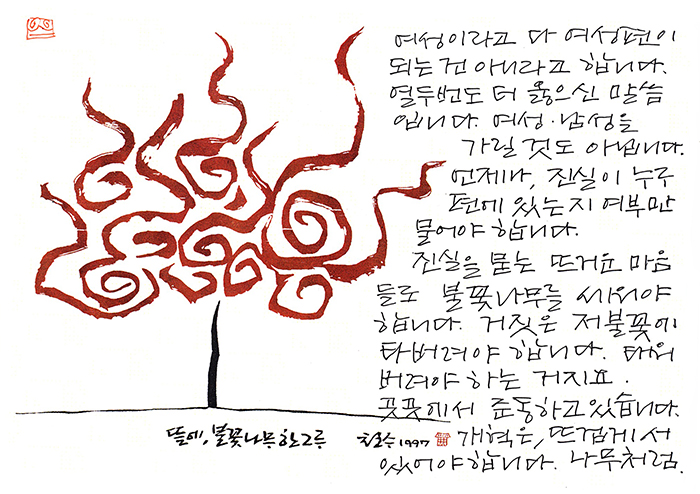 여성이라고 다 여성편이
되는 건 아니라고 합니다.
열두번도 더 옳으신 말씀
입니다. 여성·남성을
가릴 것도 아닙니다.
언제나, 진실이 누구
편에 있는지 여부만
물어야 합니다.
진실을 묻는 뜨거운 마음
들로 불꽃나무를 세워야
합니다. 거짓은 저불꽃에
타버려야 합니다. 태워
버려야 하는 거지요.
곳곳에서 준동하고있습니다.
개혁은, 뜨겁게 서
있어야합니다. 나무처럼.
뜰에, 불꽃나무 한그루
철수 1997